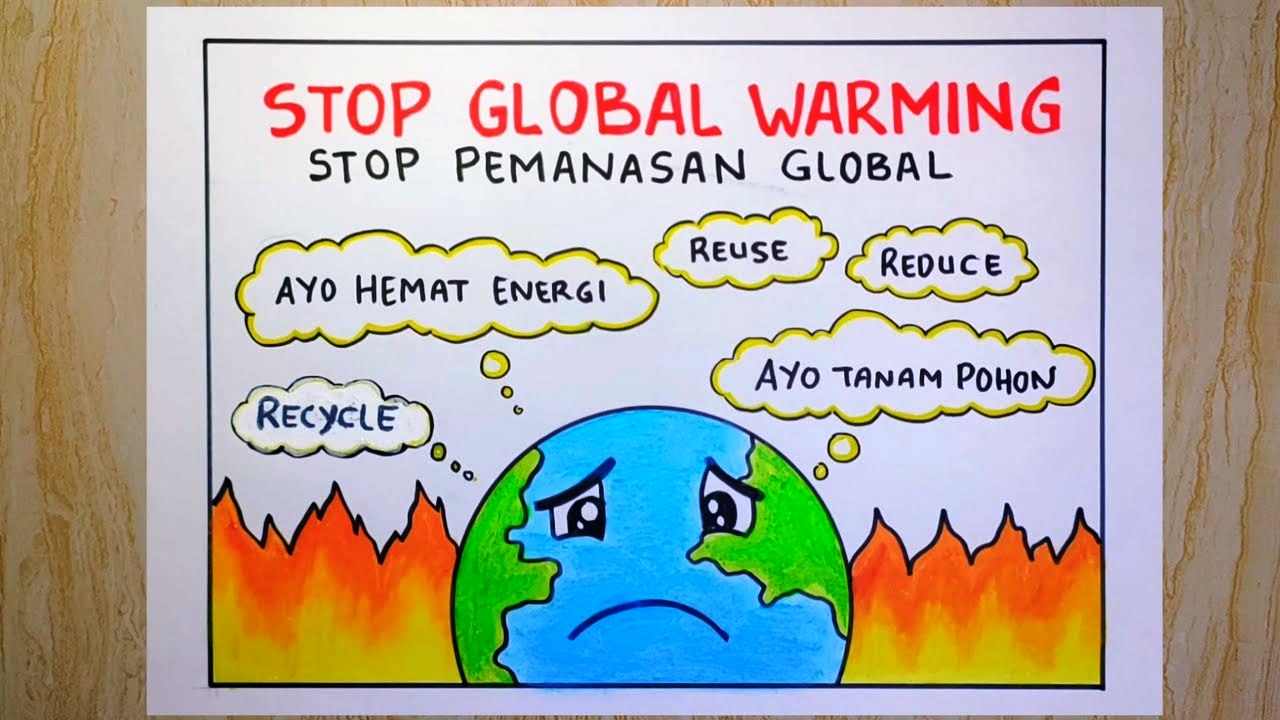 STOP GLOBAL WARMING
STOP PEMANASAN GLOBAL
AYO HEMAT ENERGI
REUSE
REDUCE
AYO TANAM POHON
RECYCLE